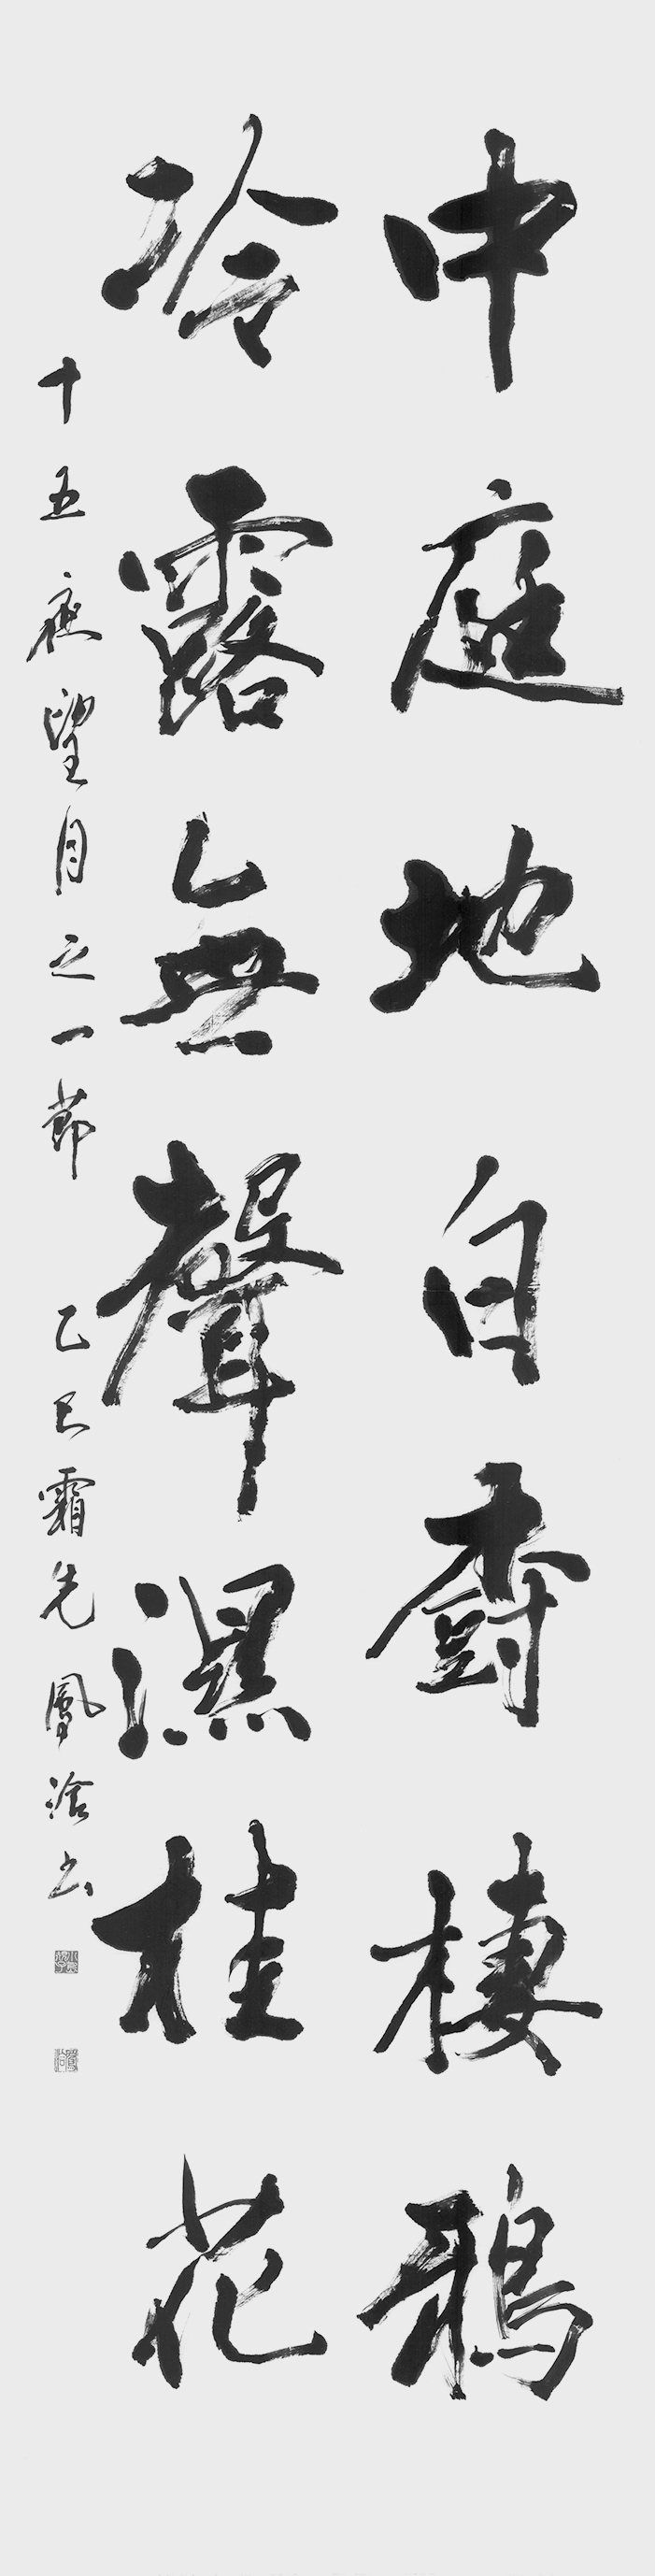 中庭地白樹棲鴉
冷露無聲濕桂花
十五夜望月之一節 乙巳霜先 鳳滄书